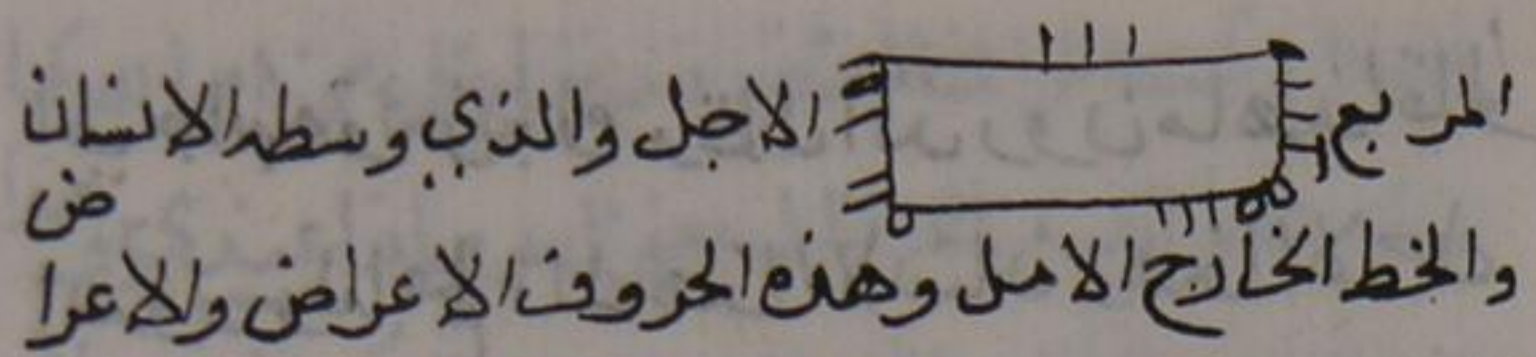 المربع الاجل والذي وسطه الانسان
والخط الخارج الامل وهذه الحروف الاعراض والاعرا
ض